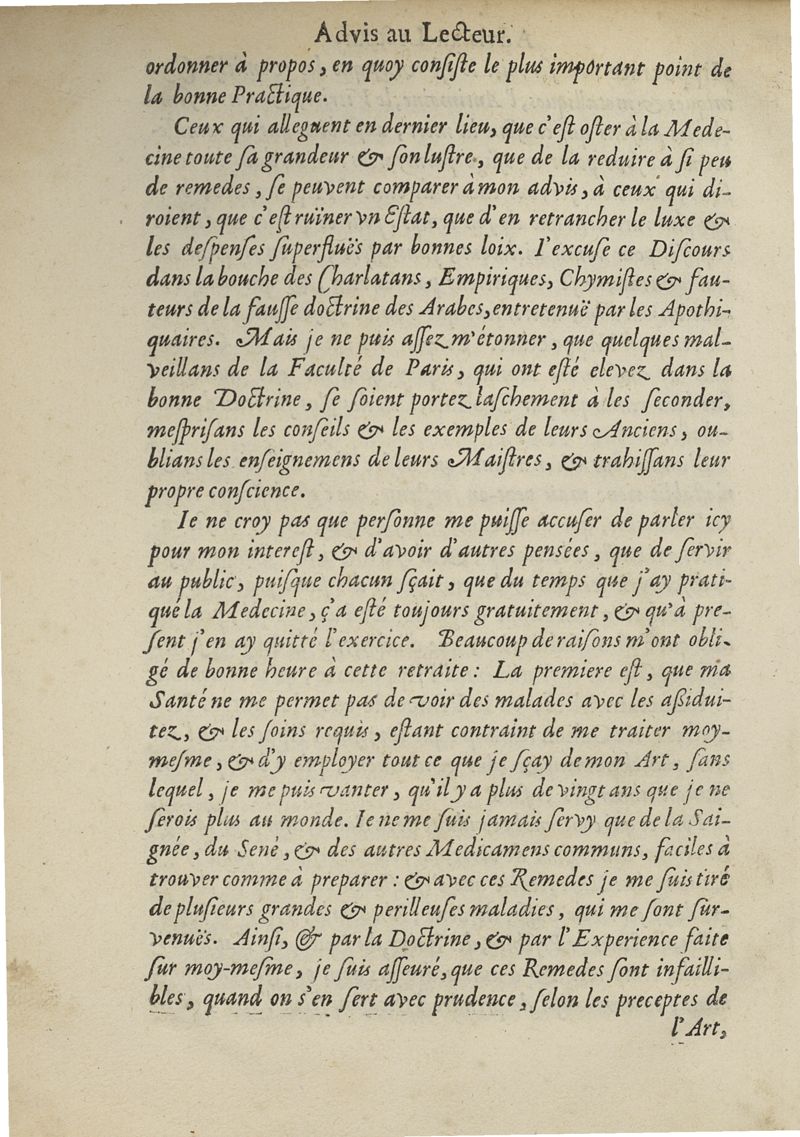 Advis au Lecteur.
ordonner à propos, en quoy consiste le plus important point de
la bonne Practique.
Ceux qui alleguent en dernier lieu, que c'est oster à la Mede-
cine toute sa grandeur & son lustre, que de la reduire à si peu
de remedes, se peuvent comparer à mon advis, à ceux qui di-
roient, que c'est ruïner vn Estat, que d'en retrancher le luxe &
les despenses superfluës par bonnes loix. I'excuse ce Discours
dans la bouche des Charlatans, Empiriques, Chymistes & fau-
teurs de la fausse doctrine des Arabes, entretenuë par les Apothi-
quaires. Mais je ne puis assez m'étonner, que quelques mal-
veillans de la Faculté de Paris, qui ont esté elevez dans la
bonne Doctrine, se soient portez laschement à les seconder,
mesprisans les conseils & les exemples de leurs Anciens, ou-
blians les enseignemens de leurs Maistres, & trahissans leur
propre conscience.
Ie ne croy pas que personne me puisse accuser de parler icy
pour mon interest, & d'avoir d'autres pensées, que de servir
au public, puisque chacun sçait, que du temps que j'ay prati-
qué la Medecine, ç'a esté toujours gratuitement, & qu'à pre-
sent j'en ay quitté l'exercice. Beaucoup de raisons m'ont obli-
gé de bonne heure à cette retraite: La premiere est, que ma
Santé ne me permet pas de voir des malades avec les assidui-
tez, & les soins requis, estant contraint de me traiter moy-
mesme, & d'y employer tout ce que je sçay de mon Art, sans
lequel, je me puis vanter, qu'il y a plus de vingt ans que je ne
serois plus au monde. Ie ne me suis jamais servy que de la Sai-
gnée, du Sené, & des autres Medicamens communs, faciles à
trouver comme à preparer: & avec ces Remedes je me suis tiré
de plusieurs grandes & perilleuses maladies, qui me sont sur-
venuës. Ainsi, & par la Doctrine, & par l'Experience faite
sur moy-mesme, je suis asseuré, que ces Remedes sont infailli-
bles, quand on s'en sert avec prudence, selon les preceptes de
l'Art,